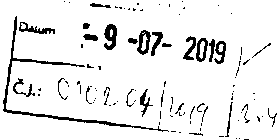 Datum :-9 -07- 2019
Č.j.: 010204/2019